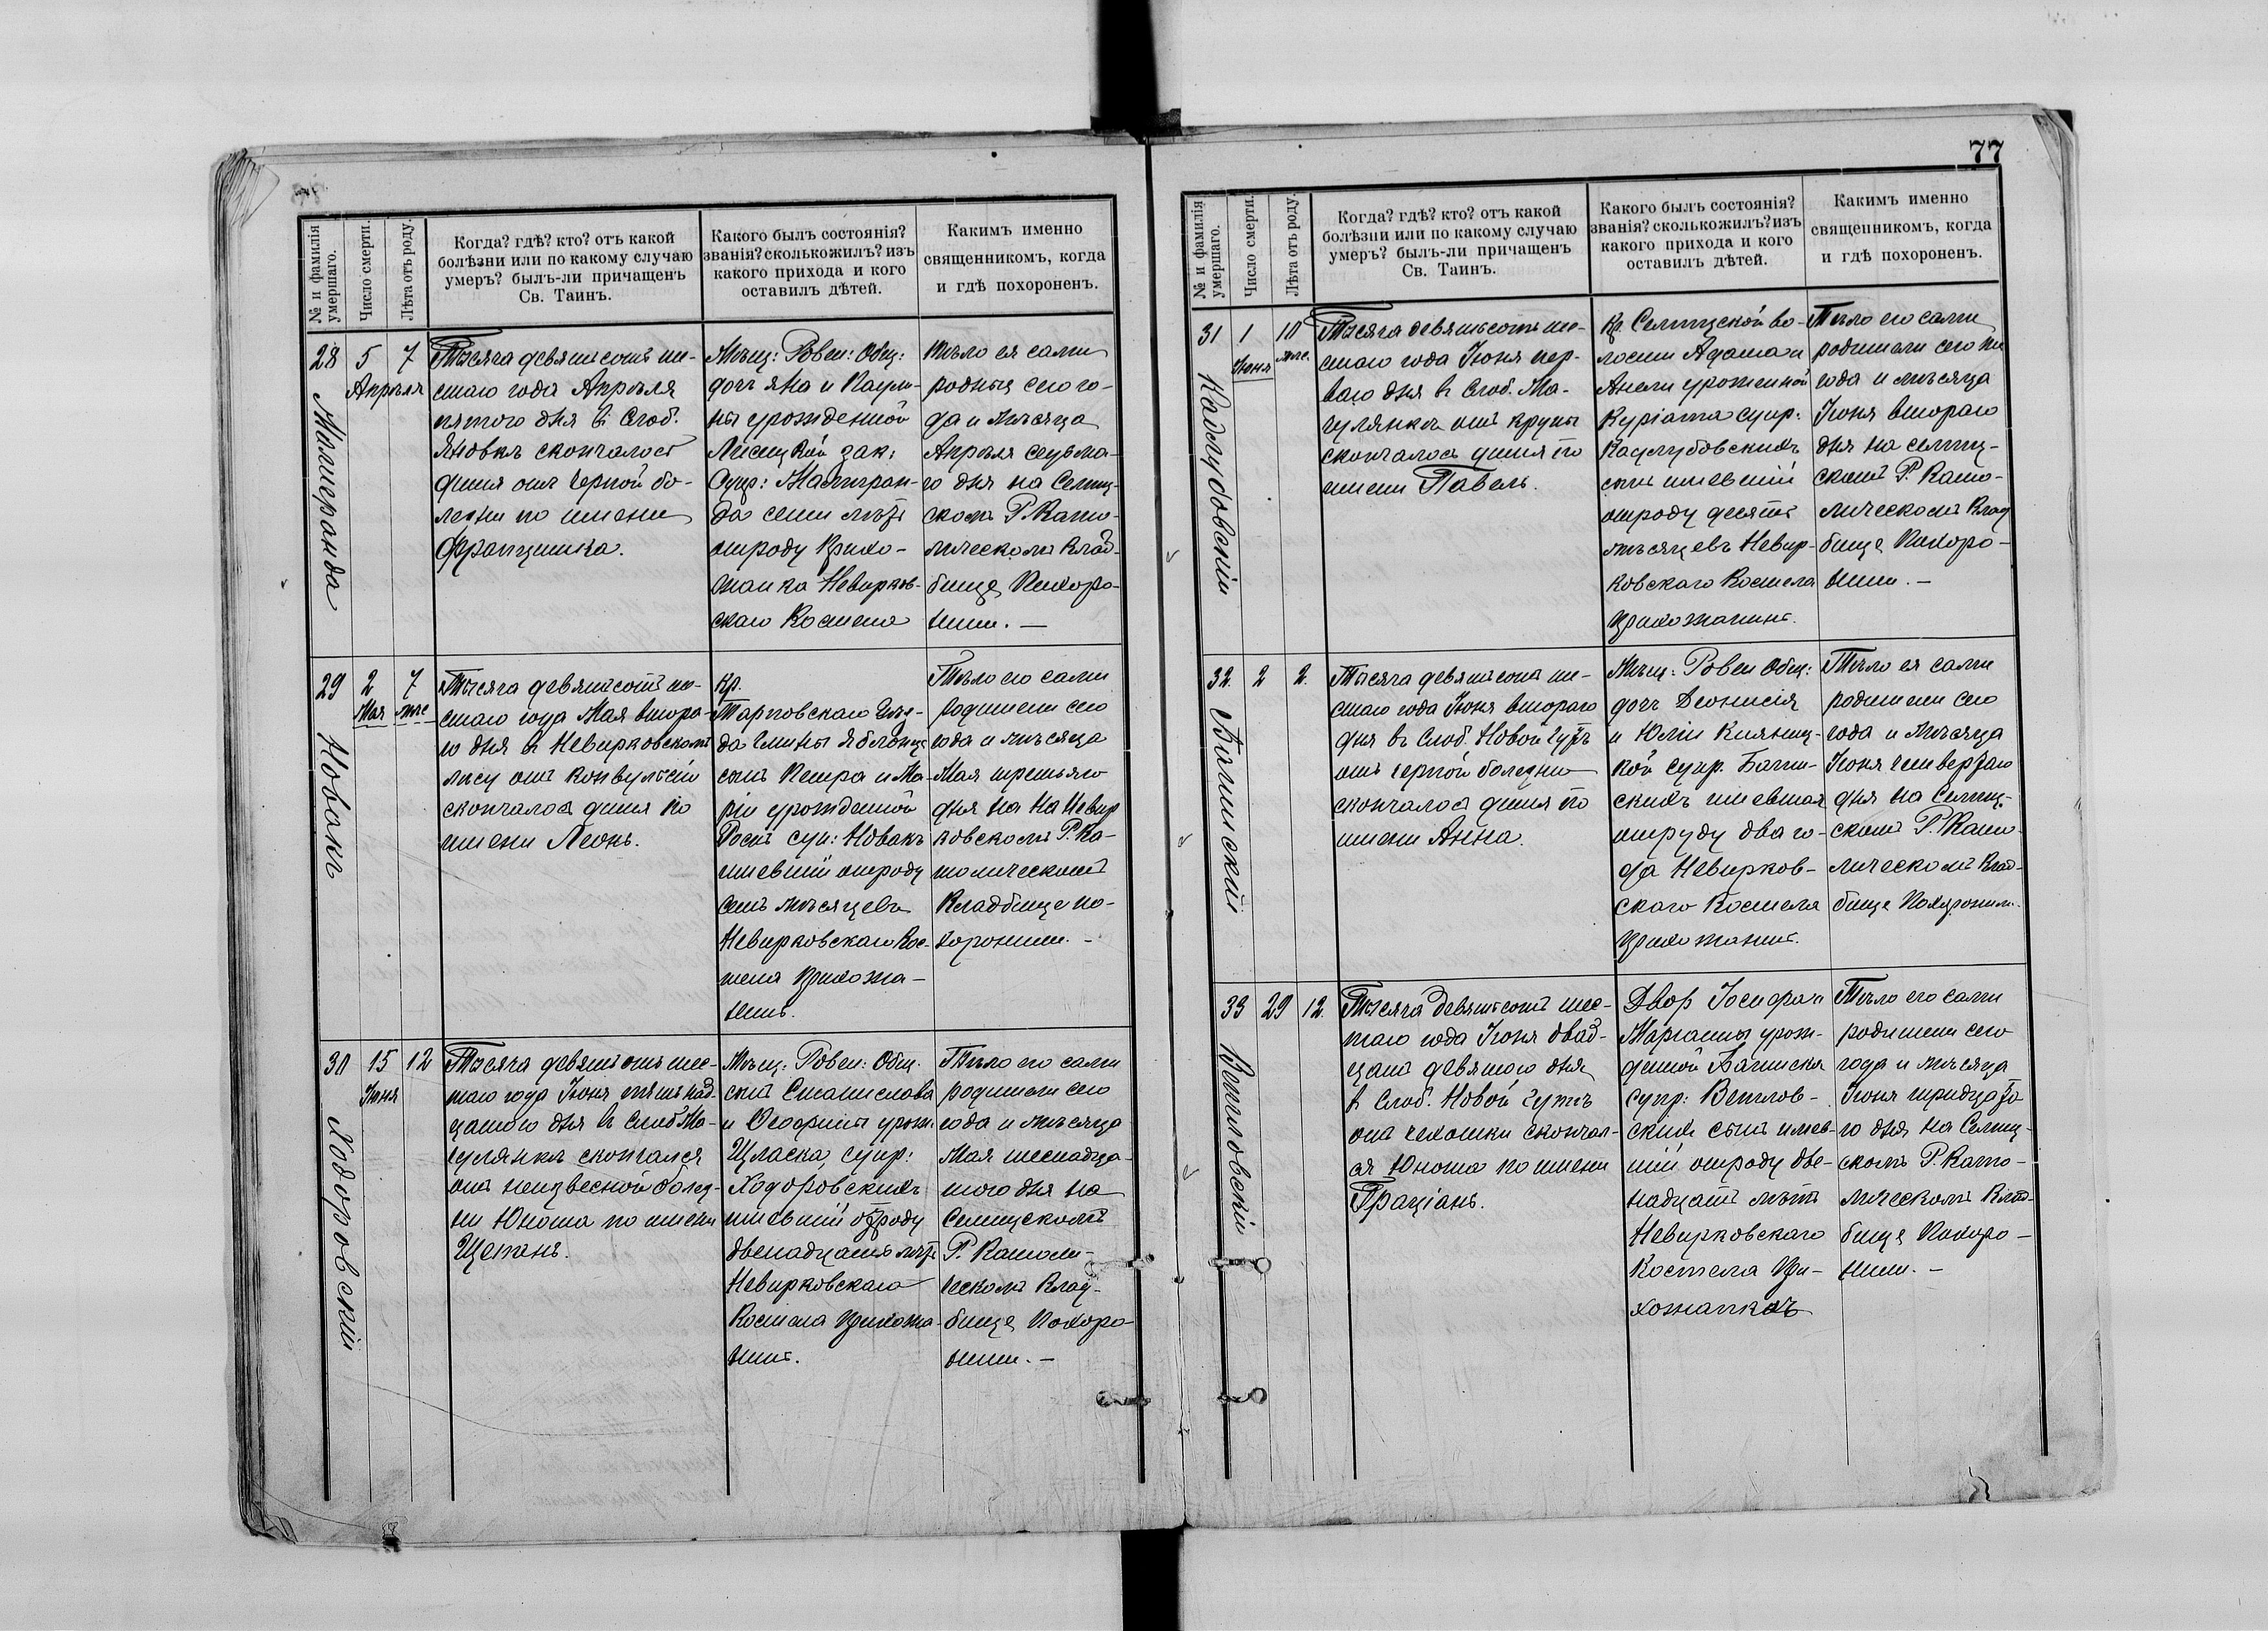 77
№ и фамилія умершаго.
Число смерти.
Лѣта отъ роду.
Когда? гдѣ? кто? отъ какой
болѣзни или по какому случаю
умеръ? былъ-ли причащенъ
Св. Таинъ.
Какого былъ состоянія?
званія? сколько жилъ? изъ
какого прихода и кого
оставилъ дѣтей.
Какимъ именно
священникомъ, когда
и гдѣ похороненъ.
28
5
Апрѣля
7
Тысяча девятьсотъ ше-
стаго года Апрѣля
пятого дня въ Слоб.
Яновкѣ скончалось
дитя отъ черной бо-
лезни по имени
Францишка.
Мѣщ: Ровен: Общ:
дочь Яна и Паули-
ны урожденной
зак:
Супр:
да семи лѣтъ
отроду Прихо-
жанка Невирков-
скаго Костела
тѣло ея сами
родныя сего го-
да и мѣсяца
Апрѣля седьма-
го дня на Селищ-
скомъ Р. Като-
лическомъ Клад-
бище Похоро-
нили. —
29
Новакъ
2
Мая
7
мѣс
Тысяча девятьсотъ ше-
стаго года Мая второ-
го дня въ Невирковскомъ
лѣсу отъ конвульсіи
скончалось дитя по
имени Леонъ.
Кр.
Тарновскаго Уѣз-
да Гмины
сынъ Петра и Ма-
ріи урожденной
суп: Новакъ
имевшій отроду
семь мѣсяцевъ
Невирковскаго Кос-
тела Прихожа-
нинъ.
Тѣло его сами
родители сего
года и мѣсяца
Мая третьяго
дня на на Невир
ковскомъ Р. Ка-
толическомъ
Кладбище по-
хоронили. -
30
Ходоровскій
15
Іюня
12
Тысяча девятьсотъ шес-
таго года Іюня пятьнад-
цатого дня въ Слоб Ма-
чулянкѣ скончался
отъ неизвесной болез-
ни Юноша по имени
Щепанъ.
Мѣщ: Ровен: Общ.
сынъ Станислава
и Феофилы урож:
супр:
Ходоровскихъ
имевшій отроду
двенадцать лѣтъ
Невирковскаго
Костела Прихожа-
нинъ.
Тѣло его сами
родители сего
года и мѣсяца
Мая шеснадца-
того дня на
Селищскомъ
Р. Католи-
ческомъ Клад-
бище Похоро-
нили. —
№ и фамилія умершаго.
Число смерти.
Лѣта отъ роду.
Когда? гдѣ? кто? отъ какой
болѣзни или по какому случаю
умеръ? былъ-ли причащенъ
Св. Таинъ.
Какого былъ состоянія?
званія? сколько жилъ? изъ
какого прихода и кого
оставилъ дѣтей.
Какимъ именно
священникомъ, когда
и гдѣ похороненъ.
31
1
Іюня
10
мѣс.
Тысяча девятьсотъ ше-
стаго года Іюня пер-
ваго дня въ Слоб. Ма-
чулянкѣ отъ крупы
скончалось дитя по
имени Павелъ.
Кр Селищской во-
лости Адама и
Анели уроженной
супр:
сынъ имевшій
отроду десять
мѣсяцевъ Невир-
ковскаго Костела
прихожанинъ.
Тѣло его сами
родители сего
года и мѣсяца
Іюня втораго
дня на селищ-
скомъ Р. Като-
лическомъ Клад
бище Похоро-
нили. —
32.
2
2.
Тысяча девятьсотъ ше-
стаго года Іюня втораго
дня въ Слоб. Новой Гутѣ
отъ черной болезни
скончалось дитя по
имени Анна.
Мѣщ: Ровен Общ:
дочь Діонисія
и Юліи
кой супр.
скихъ имевшая
отруду два го-
да Невирков-
скаго Костела
Прихожанинъ.
Тѣло ея сами
родители сего
года и мѣсяца
Іюня четвертаго
дня на Селищ-
скомъ Р. Като-
лическомъ Клад-
бище Похоронили.
33
29
12.
Тысяча девятьсотъ шес-
таго года Іюня двад-
цать девятого дня
въ Слоб. Новой Гутѣ
отъ чехотки скончал-
ся Юноша по имени
Граціанъ.
Двор Іосифа и
Маріанны урож-
денной
супр:
скихъ сынъ имев-
шій отроду две-
надцать лѣтъ
Невирковскаго
Костела При-
хожанинъ
Тѣло его сами
родители сего
года и мѣсяца
Іюня тридцато
го дня на Селищ-
скомъ Р. Като-
лическомъ Клад-
бище Похоро-
нили. —